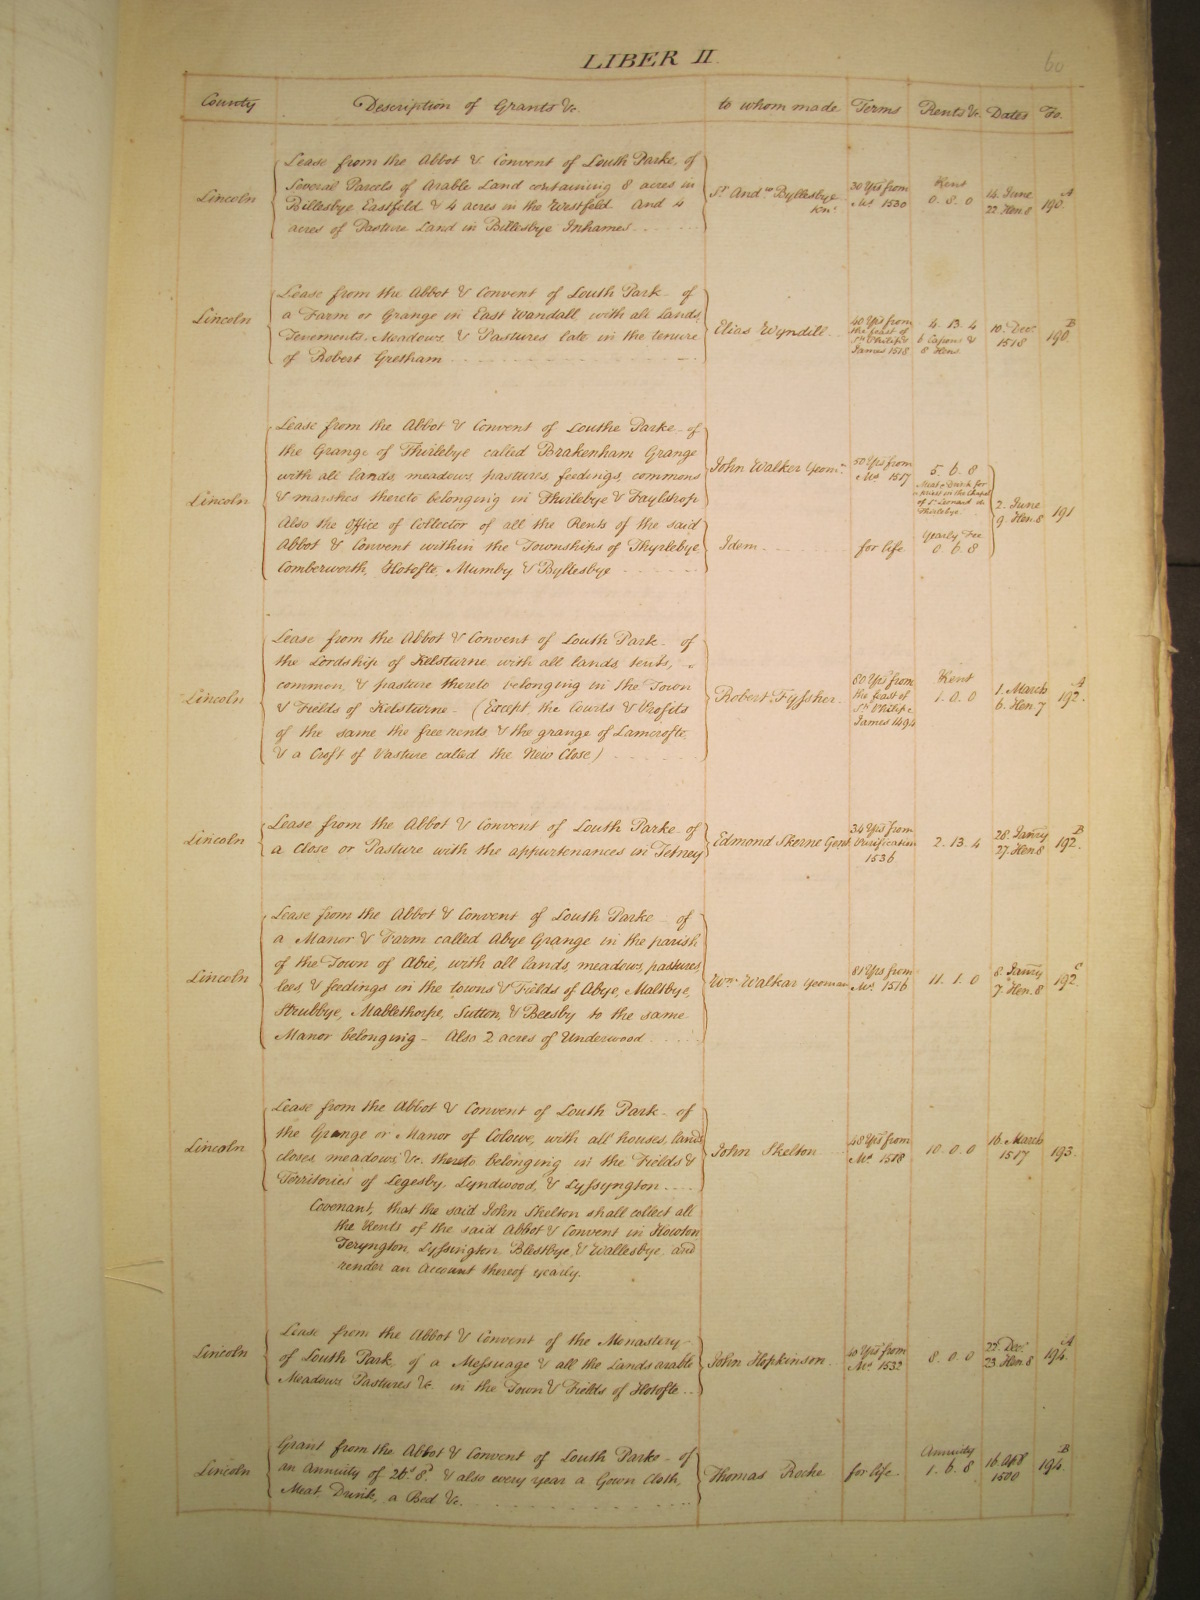 LIBER II
60
County Description of Grants &c. to whom made Terms Rents &c. Dates Fo.
Lincoln
Lease from the Abbot & Convent of Louth Parke, of
Several Parcels of Arable Land containing 8 acres in
Billesbye Eastfeld & 4 acres in the Westfeld. And 4
acres of Pasture Land in Billesbye Inhames
Sr. And.w Byllesbye
Knt.
30 Yrs from
Ms. 1530
Rent
0. 8. 0
14. June
22. Hen. 8
190. A
Lincoln
Lease from the Abbot & Convent of Louth Park of
a Farm or Grange in East Wandall, with all Lands,
Tenements, Meadows, & Pastures late in the tenure
of Robert Gretham
Elias Wyndill
40 Yrs from
the feast of
Sts. Philip &
James 1518
4. 13. 4
6 Capons &
8 Hens
10. Decr.
1518
190. B
Lincoln
Lease from the Abbot & Convent of Louthe Parke of
the Grange of Thirlebye called Brakenham Grange
with all lands, meadows, pastures, feedings, commons
& marshes thereto belonging in Thirlebye & Faylthop
John Walker Yeomn.
50 Yrs from
Ms. 1517
5. 6. 8
Meat & Drink for
a priest in the Chapel
of St. Leonard de
Thirlebye
2. June
9. Hen. 8
191
Also the Office of Collector of all the Rents of the said
Abbot & Convent within the Townships of Thyrlebye
Comberworth, Hotofte, Mumby & Byllesbye
Idem
for life
Yearly Fee
0. 6. 8
Lincoln
Lease from the Abbot & Convent of Louth Park of
the Lordship of Kelsturne with all lands, tents,
common, & pasture thereto belonging in the Town
& Fields of Kelsturne (Except, the Courts & Profits
of the same the free rents, & the grange of Lamcrofte
& a Croft of Pasture called the New Close)
Robert Fyssher
60 Yrs from
the feast of
Sts. Philip &
James 1494
Rent
1. 0. 0
1. March
6. Hen. 7
192. A
Lincoln
Lease from the Abbot & Convent of Louth Parke of
a Close or Pasture with the appurtenances in Tetney
Edmond Skerne Gent.
34 Yrs from
Purification
1536
2. 13. 4
28. Janry
27. Hen. 8
192. B
Lincoln
Lease from the Abbot & Convent of Louth Parke of
a Manor & Farm called Abye Grange in the parish
of the Town of Abie, with all lands, meadows, pastures,
lees, & feedings in the towns & Fields of Abye, Maltbye,
Strubbye, Mablethorpe, Sutton, & Beesby to the same
Manor belonging Also 2 acres of Underwood
Wm. Walkar Yeoman
81 Yrs from
Ms. 1516
11. 1. 0
8. Janry
7. Hen. 8
192. C
Lincoln
Lease from the Abbot & Convent of Louth Park of
the Grange or Manor of Colowe, with all houses, lands
closes, meadows, &c. thereto belonging in the Fields &
Territories of Legesby, Lyndwood, & Lyssyngton
Covenant, that the said John Skelton shall collect all
the Rents of the said Abbot & Convent in Howton
Teryngton, Lyssington, Blestbye, & Wallesbye, and
render an Account thereof yearly.
John Skelton
48 Yrs from
Ms. 1518
10. 0. 0
16. March
1517
193.
Lincoln
Lease from the Abbot & Convent of the Monastery
of Louth Park, of a Messuage & all the Lands arable
Meadows, Pastures &c. in the Town & Fields of Hotofte
John Hopkinson
40 Yrs from
Ms. 1532
8. 0. 0
22. Decr.
23. Hen. 8
194. A
Lincoln
Grant from the Abbot & Convent of Louth Parke of
an Annuity of 26s. 8d. & also every year a Gown Cloth,
Meat, Drink, a Bed &c.
Thomas Roche
for life
Annuity
1. 6. 8
16. Apl
1500
194. B